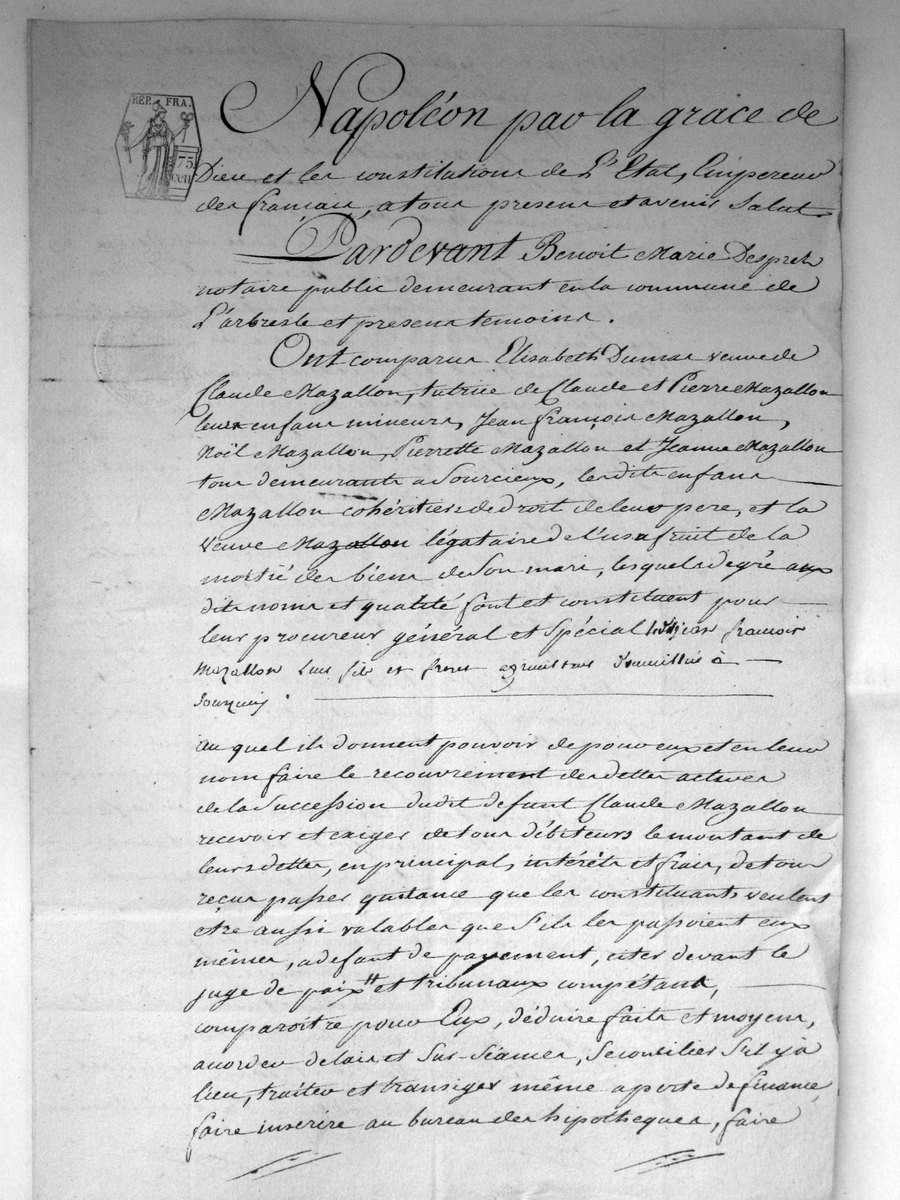 REP. FRA.
75
cen
Napoléon par la grace de
Dieu et les constitutions de L'Etat, Empereur
des français, a tous presens et avenir Salut.
Pardevant Benoit Marie Despreh
notaire public demeurant en la commune de
L'arbresle et presens temoins.
Ont comparus Elisabeth Dumas veuve de
Claude Mazallon, tutrice de Claude et Pierre Mazallon
leurs enfans mineurs, Jean françois Mazallon,
Noël Mazallon, Pierrette Mazallon et Jeanne Mazallon
tous demeurants a Sourcieux, lesdits enfans
Mazallon cohéritiers de droit de leur pere, et la
veuve Mazallon légataire de l'usufruit de la
moitié des biens de Son mari, lesquels de gré aux
dits noms et qualité font et constituent pour
leur procureur général et spécial jean francois
Mazallon leur fils et frere à
Sourcieux.
au quel ils donnent pouvoir de pour eux et en leur
nom faire le recouvrement des dettes actives
de la Succession dudit defunt Claude Mazallon
recevoir et exiger de tous débiteurs le montant de
leurs dettes, en principal, intérêts et frais, de tous
reçus passer quitance que les constituants veulent
etre aussi valables que S'ils les passoient eux
mêmes, a defaut de payement, citer devant le
juge de paix et tribunaux compétants,
comparoitre pour Eux, déduire faits et moyens,
acorder delais et Sur-Séances, Se concilier S'il y a
lieu, traiter et transiger même a perte de finance
faire inscrire au bureau des hipotheques, faire